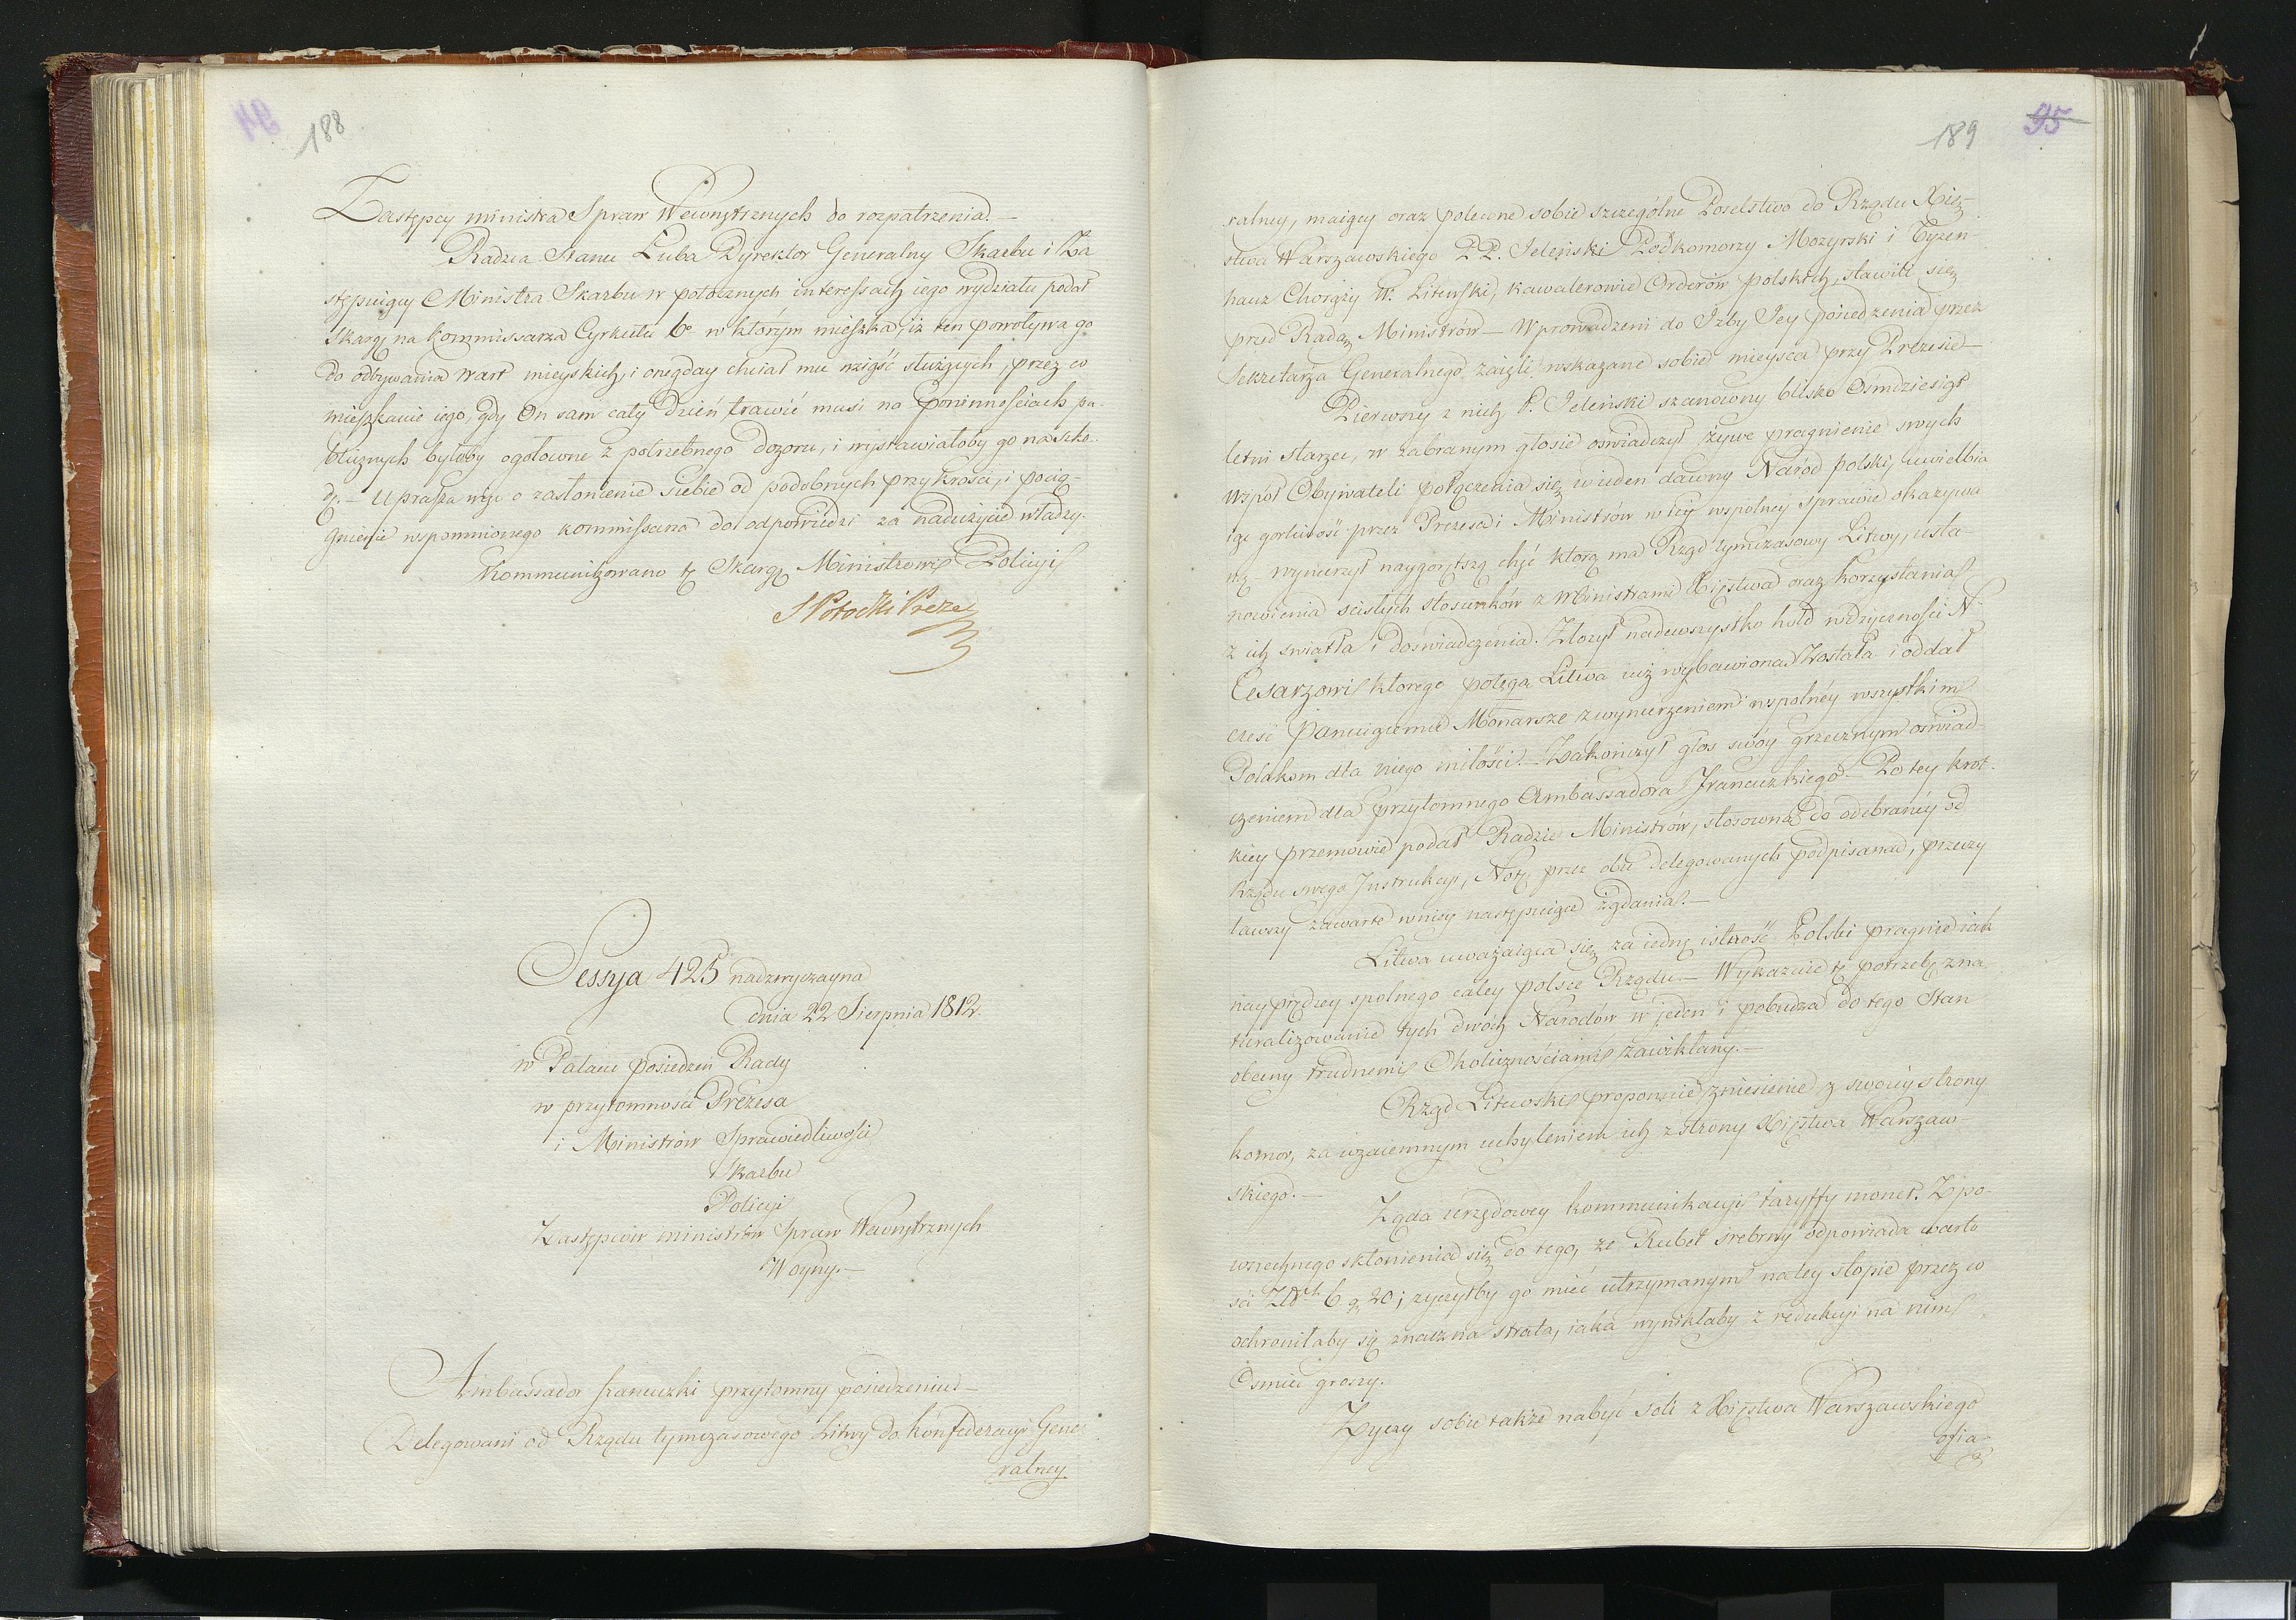 188
Zastępcy ministra Spraw Wewnętrznych do rozpatrzenia.—
Radzca Stanu Łuba Dyrektor Generalny Skarbu i Za
stępuiący Ministra Skarbu w potocznych interessach iego wydziału podał
Skargę na Kommissarza Cyrkułu 6o w którym mieszka, iż ten powoływa go
do odbywania Wart mieyskich, i onegday chciał mu wziąść służących, przez co
mieszkanie iego, gdy On sam cały dzień trawić musi na Powinnościach pu-
blicznych byłoby ogołocone z potrzebnego dozoru, i wystawiałoby go na szko-
dę.— Uprasza więc o zasłonienie siebie od podobnych przykrości, i pocią-
gnienie wspomnionego Kommissarza do odpowiedzi za nadużycie władzy.
Kommunikowano tę Skargę Ministrowi Policyi
S Potocki Prezes
Sessya 425 nadzwyczayna
dnia 22 Sierpnia 1812.
w Pałacu posiedzeń Rady
w przytomności Prezesa
i Ministrów Sprawiedliwości
Skarbu
Policyi
Zastępców ministrów Spraw Wewnętrznych
Woyny.—
Ambassador francuzki przytomny posiedzeniu—
Delegowani od Rządu tymczasowego Litwy do konfederacyi Gene
ralney
189
95
ralney, maiący oraz polecone sobie szczególne Poselstwo do Rządu Xię-
stwa Warszawskiego PP. Jeleński Podkomorzy Mozyrski i Tyzen-
hauz Chorąży W. Litewski, kawalerowie Orderów polskich, stawili się
przed Radą Ministrów— Wprowadzeni do Izby Jey posiedzenia przez
Sekretarza Generalnego zaięli wskazane sobie mieysca przy Prezesie—
Pierwszy z nich P. Jeleński szanowny blisko Ośmdziesiąt
letni starzec, w zabranym głosie oświadczył żywe pragnienie swych
Wspól Obywateli połączenia się w ieden dawny Naród polski, uwielbia
iąc gorliwość przez Prezesa i Ministrów w tey wspolney Sprawie okazywa
ną— wynurzył naygorętszą chęć którą ma Rząd tymczasowy Litwy, usta-
nowienia ścisłych stosunków z Ministrami Xięstwa oraz korzystania
z ich swiatła i doświadczenia. Złożył nadewszystko hołd wdzięczności N.
Cesarzowi którego potęgą Litwa iuż wybawiona została i oddał
cześć Panuiącemu Monarsze z wynurzeniem wspolnéy wszystkim
Polakom dla niego miłości.— Zakończył głos swóy grzecznym oświad-
czeniem dla przytomnego Ambassadora Francuzkiego— Po tey krot-
kiey przemowie podał Radzie Ministrów, stosownie do odebranéy od
Rządu swego Instrukcyi, Notę przez obu delegowanych podpisaną, przeczy
tawszy zawarte w niey następuiące żądania.—
Litwa uważaiąca się za iednę istność Polski pragnie iak
nayprędzey spolnego całey polsce Rządu.— Wykazuie tę potrzebę zna
turalizowanie tych dwóch Narodów w jeden i pobudza do tego Stan
obecny trudnemi Okolicznościami zawikłany.—
Rząd Litewski proponuie zniesienie z swoiey strony
komor, za wzaiemnym uchyleniem ich z strony Xięstwa Warszaw-
skiego.—
Żąda urzędowey kommunikacyi taryffy monet. Z po
wszechnego skłonienia się do tego, że Rubel srebrny odpowiada warto
ści Złch 6 gr 20; życzyłby go mieć utrzymanym na tey stopie przez co
ochroniłaby się znaczna strata, iaka wynikłaby z redukcyi na nim
Osmiu groszy.
Życzy sobie także nabyć soli z Xięstwa Warszawskiego
ofia-